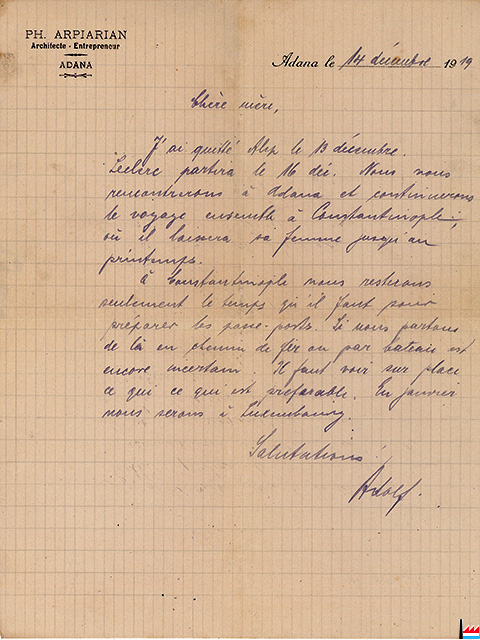 PH. ARPIARIAN
Architecte - Entrepreneur
ADANA
Adana le 14 décembre 1919
Chère mère,
J'ai quitté Alep le 13 décembre.
Leclerc partira le 16 déc. Nous nous
rencontrerons à Adana et continuerons
le voyage ensemble à Constantinople,
où il laissera sa femme jusqu'au
printemps.
à Constantinople nous resterons
seulement le temps qu'il faut pour
préparer les passe-ports. Si nous partons
de là en chemin de fer ou par bateau est
encore incertain. Il faut voir sur place
ce qui ce qui est préférable. En janvier
nous serons à Luxembourg.
Salutations!
Adolf.